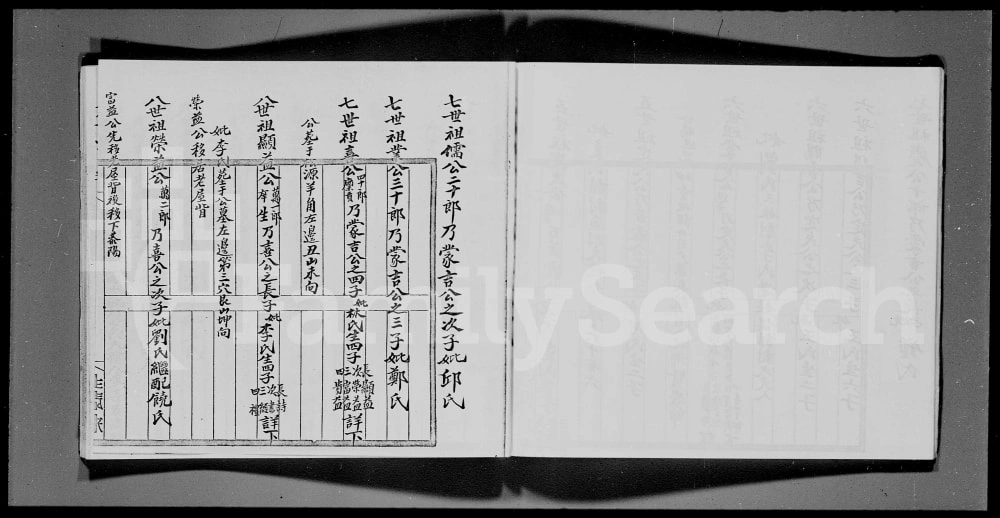 七世祖儒公二十郎乃蒙吉公之次子妣邱氏
七世祖業公三十郎乃蒙吉公之三子妣鄭氏
七世祖喜公四十郎廩貢乃蒙吉公之四子妣林氏生四子長顯益次榮益三富益四貴益詳下
公墓于松源羊角左邊丑山未向
八世祖顯益公萬一郎庠生乃喜公之長子妣李氏生四子長詩次書三經四禮詳下
妣李氏葬于公墓左邊第三穴艮山坤向
榮益公移居老屋背
八世祖榮益公萬二郎乃喜公之次子妣劉氏繼配饒氏
富益公先移老屋背後移下泰陽
FamilySearch